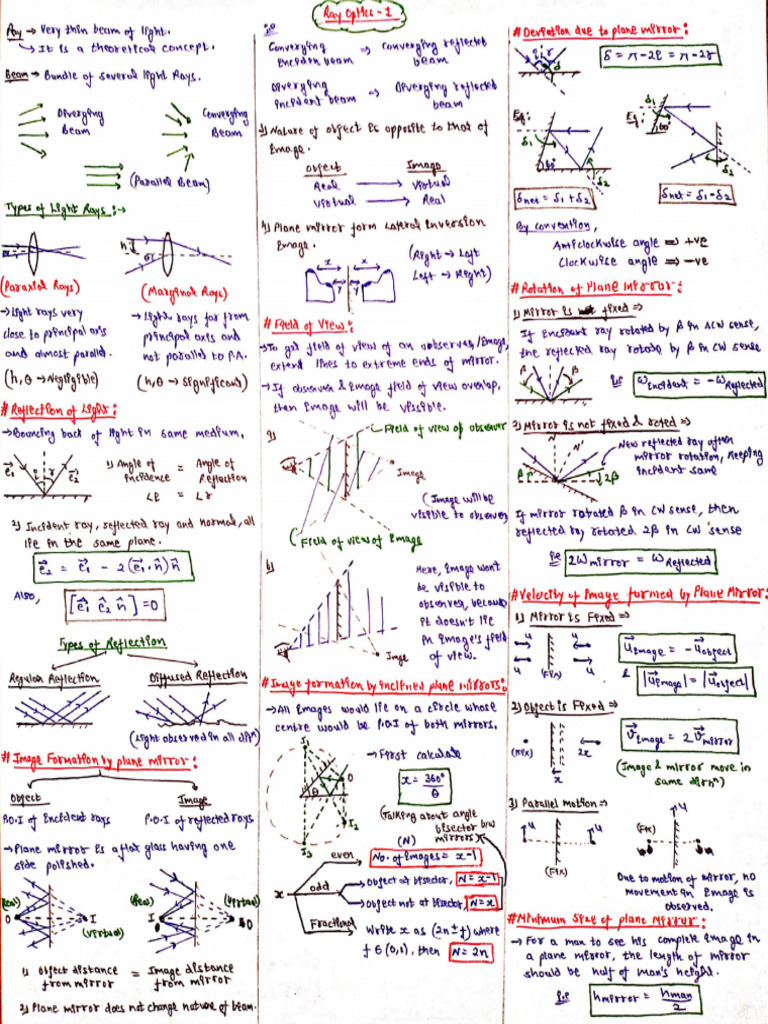 Ray Optics - 1
Ray → Very thin beam of light.
↳ It is a theoretical concept.
Beam → Bundle of several light Rays.
Diverging
Beam
Converging
Beam
(Parallel Beam)
Types of Light Rays :→
h
(Paraxial Rays)
(Marginal Rays)
→ Light rays very
close to principal axis
and almost parallel.
(h, θ → Negligible)
→ Light rays far from
principal axis and
not parallel to P.A.
(h, θ → Significant)
# Reflection of Light :
→ Bouncing back of light in same medium.
1) Angle of incidence = Angle of Reflection
∠i = ∠r
2) Incident ray, reflected ray and normal, all
lie in the same plane.
e⃗₂ = e⃗₁ - 2(e⃗₁.n̂)n̂
Also,
[e⃗₁ ê₂ n̂] = 0
Types of Reflection
Regular Reflection
Diffused Reflection
(Light observed in all dirⁿ)
# Image Formation by plane mirror :
Object
Image
P.O.I of Incident rays
P.O.I of reflected rays
→ Plane mirror is a flat glass having one
side polished.
(Real)
O
I
(Virtual)
(Real)
I
(Virtual)
O
1) Object distance from mirror = Image distance from mirror
2) Plane mirror does not change nature of beam.
i.e
Converging Inciden beam ⇒ Converging reflected beam
Diverging incident beam ⇒ Diverging reflected beam
3) Nature of object is opposite to that of
Image.
Object
Image
Real → Virtual
Virtual → Real
4) Plane mirror form Lateral Inversion
Image.
(Right → Left
Left → Right)
x x
y y
# Field of View :
→ To get field of view of an observer/Image,
extend lines to extreme ends of mirror.
→ If observer & Image field of view overlap,
then Image will be visible.
a)
Field of view of observer
Image
(Image will be
visible to observer)
Field of view of Image
b)
Here, Image won't
be visible to
observer, because
it doesn't lie
in Image's field
of view.
Image
# Image formation by Inclined plane mirrors :
→ All Images would lie on a circle whose
centre would be P.O.I of both mirrors.
I₁
θ
O
I₂
I₃
→ First calculate
x = 360°/θ
(Talking about angle
bisector b/w
mirrors)
(N)
x
even
No. of Images = x-1
odd
Object at bisector, N = x-1
Object not at bisector, N = x
Fractional
Write x as (2n ± f) where
f ∈ (0,1), then N = 2n
# Deviation due to plane mirror :
δ = π - 2i = π - 2r
Eg:
δ₁
δ₂
δnet = δ₁ + δ₂
Eg:
δ₁
δ₂
δnet = δ₁ - δ₂
By convention,
Anticlockwise angle ⇒ +ve
Clockwise angle ⇒ -ve
# Rotation of Plane Mirror :
1) Mirror is fixed ⇒
If Incident ray rotated by β in ACW sense,
the reflected ray rotate by β in CW sense
β β
i.e ωIncident = -ωReflected
2) Mirror is not fixed & roted ⇒
N N'
New reflected ray after
mirror rotation, keeping
incident same
β
2β
If mirror rotated β in CW sense, then
reflected ray rotated 2β in CW sense
i.e 2ωmirror = ωReflected
# Velocity of Image formed by Plane Mirror :
1) Mirror is Fixed ⇒
u u
u u
(Fix)
u⃗Image = -u⃗object
& |u⃗Image| = |u⃗object|
2) Object is Fixed ⇒
(Fix)
2x
x
V⃗Image = 2V⃗mirror
(Image & mirror move in
same dirⁿ)
3) Parallel motion ⇒
u
u
(Fix)
(Fix)
u
Due to motion of mirror, no
movement in Image is
observed.
# Minimum Size of plane Mirror :
→ For a man to see his complete Image in
a plane mirror, the length of mirror
should be half of man's height.
i.e hmirror = hman/2